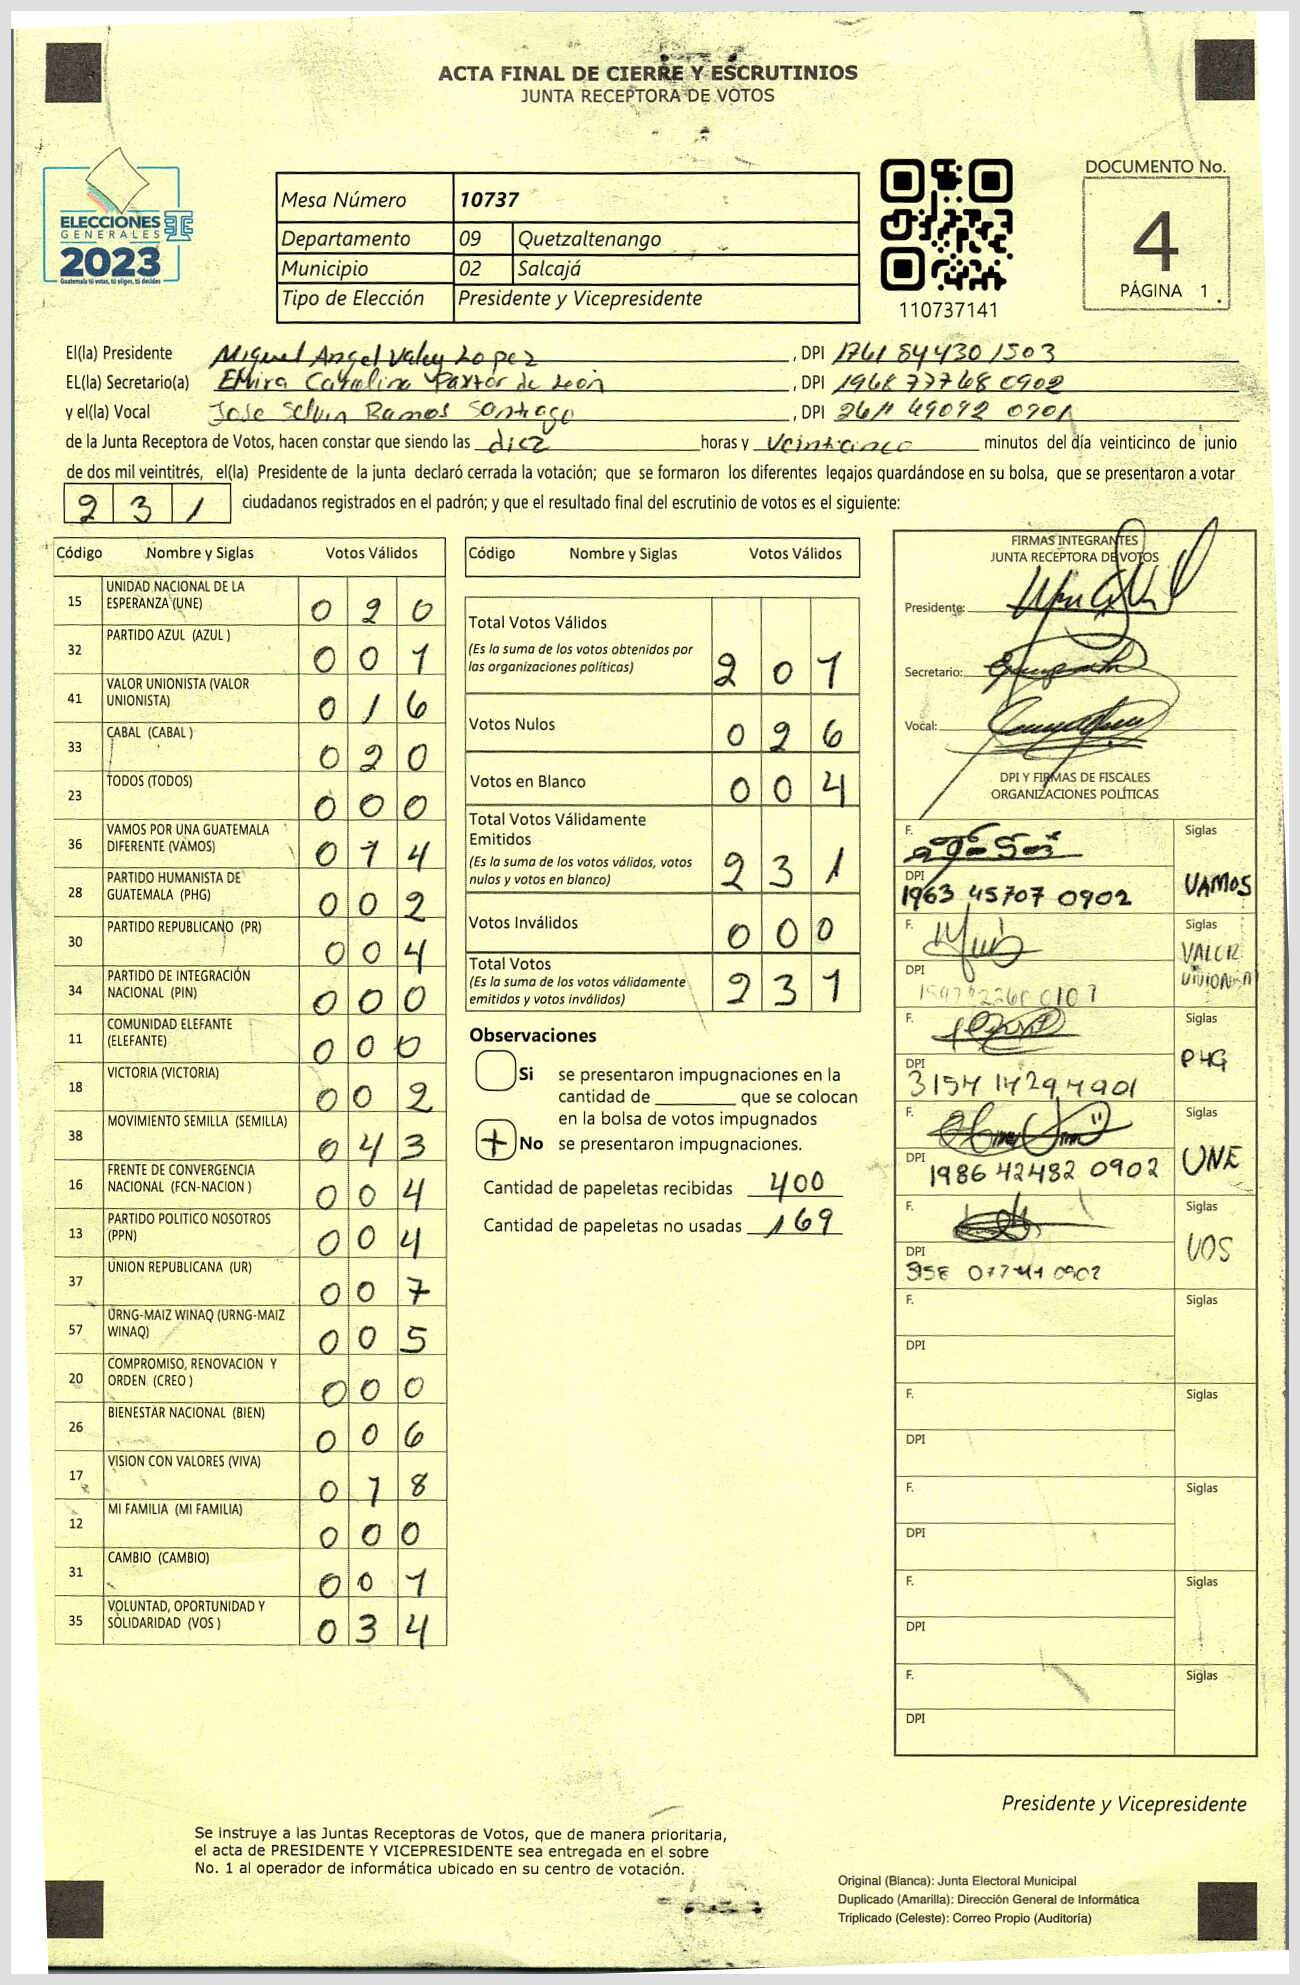 ACTA FINAL DE CIERRE Y ESCRUTINIOS
JUNTA RECEPTORA DE VOTOS
ELECCIONES
GENERALES
2023
Guatemala tú votas, tú eliges, tú decides
Mesa Número 10737
Departamento 09 Quetzaltenango
Municipio 02 Salcajá
Tipo de Elección Presidente y Vicepresidente
110737141
DOCUMENTO No.
4
PÁGINA 1
El(la) Presidente Miguel Angel Valey Lopez, DPI 1761 84430 1503
EL(la) Secretario(a) Elvira Carolina Pastor de León, DPI 1968 77768 0902
y el(la) Vocal Jose Selvin Ramos Santiago, DPI 2611 49092 0901
de la Junta Receptora de Votos, hacen constar que siendo las diez horas y veinticinco minutos del día veinticinco de junio
de dos mil veintitrés, el(la) Presidente de la junta declaró cerrada la votación; que se formaron los diferentes legajos guardándose en su bolsa, que se presentaron a votar
231 ciudadanos registrados en el padrón; y que el resultado final del escrutinio de votos es el siguiente:
Código Nombre y Siglas Votos Válidos
15 UNIDAD NACIONAL DE LA ESPERANZA (UNE) 020
32 PARTIDO AZUL (AZUL ) 001
41 VALOR UNIONISTA (VALOR UNIONISTA) 016
33 CABAL (CABAL ) 020
23 TODOS (TODOS) 000
36 VAMOS POR UNA GUATEMALA DIFERENTE (VAMOS) 014
28 PARTIDO HUMANISTA DE GUATEMALA (PHG) 002
30 PARTIDO REPUBLICANO (PR) 004
34 PARTIDO DE INTEGRACIÓN NACIONAL (PIN) 000
11 COMUNIDAD ELEFANTE (ELEFANTE) 000
18 VICTORIA (VICTORIA) 002
38 MOVIMIENTO SEMILLA (SEMILLA) 043
16 FRENTE DE CONVERGENCIA NACIONAL (FCN-NACION ) 004
13 PARTIDO POLITICO NOSOTROS (PPN) 004
37 UNION REPUBLICANA (UR) 007
57 URNG-MAIZ WINAQ (URNG-MAIZ WINAQ) 005
20 COMPROMISO, RENOVACION Y ORDEN (CREO ) 000
26 BIENESTAR NACIONAL (BIEN) 006
17 VISION CON VALORES (VIVA) 018
12 MI FAMILIA (MI FAMILIA) 000
31 CAMBIO (CAMBIO) 001
35 VOLUNTAD, OPORTUNIDAD Y SOLIDARIDAD (VOS ) 034
Código Nombre y Siglas Votos Válidos
Total Votos Válidos
(Es la suma de los votos obtenidos por
las organizaciones políticas) 201
Votos Nulos 026
Votos en Blanco 004
Total Votos Válidamente
Emitidos
(Es la suma de los votos válidos, votos
nulos y votos en blanco) 231
Votos Inválidos 000
Total Votos
(Es la suma de los votos válidamente
emitidos y votos inválidos) 231
Observaciones
Si se presentaron impugnaciones en la
cantidad de ________ que se colocan
en la bolsa de votos impugnados
+ No se presentaron impugnaciones.
Cantidad de papeletas recibidas 400
Cantidad de papeletas no usadas 169
FIRMAS INTEGRANTES
JUNTA RECEPTORA DE VOTOS
Presidente:
Secretario:
Vocal:
DPI Y FIRMAS DE FISCALES
ORGANIZACIONES POLÍTICAS
F. Siglas
DPI 1963 45707 0902 VAMOS
F. Siglas
DPI VALOR UNIONISTA
F. Siglas
DPI 3154 14294901 PHG
F. Siglas
DPI 1986 42482 0902 UNE
F. Siglas
DPI VOS
F. Siglas
DPI
F. Siglas
DPI
F. Siglas
DPI
F. Siglas
DPI
F. Siglas
DPI
Presidente y Vicepresidente
Se instruye a las Juntas Receptoras de Votos, que de manera prioritaria,
el acta de PRESIDENTE Y VICEPRESIDENTE sea entregada en el sobre
No. 1 al operador de informática ubicado en su centro de votación.
Original (Blanca): Junta Electoral Municipal
Duplicado (Amarilla): Dirección General de Informática
Triplicado (Celeste): Correo Propio (Auditoría)